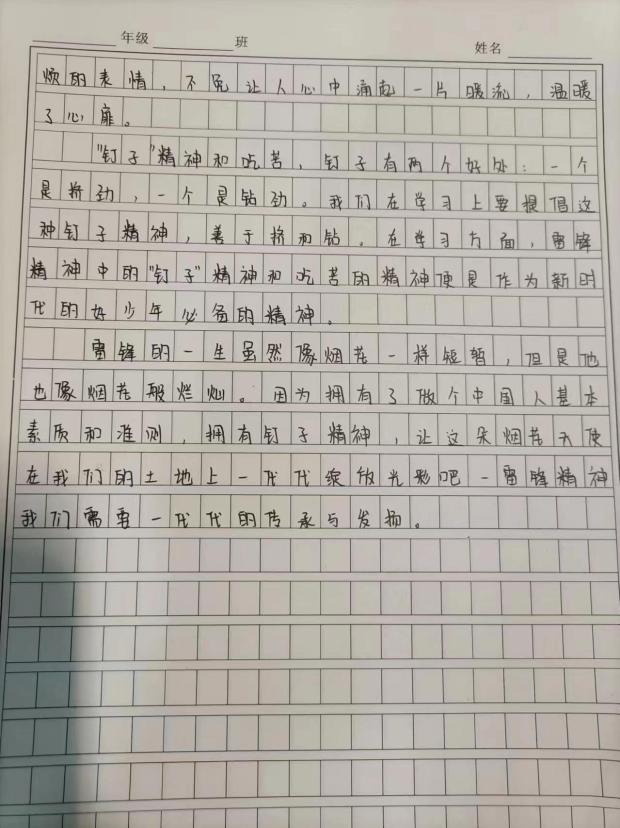 年级 班 姓名
烦的表情，不免让人心中涌起一片暖流，温暖
了心扉。
"钉子"精神和吃苦，钉子有两个好处：一个
是挤劲，一个是钻劲。我们在学习上要提倡这
种钉子精神，善于挤和钻。在学习方面，雷锋
精神中的"钉子"精神和吃苦的精神便是作为新时
代的好少年必备的精神。
雷锋的一生虽然像烟花一样短暂，但是他
也像烟花般烂灿。因为拥有了做个中国人基本
素质和准则，拥有钉子精神，让这朵烟花天使
在我们的土地上一代代绽放光彩吧－雷锋精神
我们需要一代代的传承与发扬。